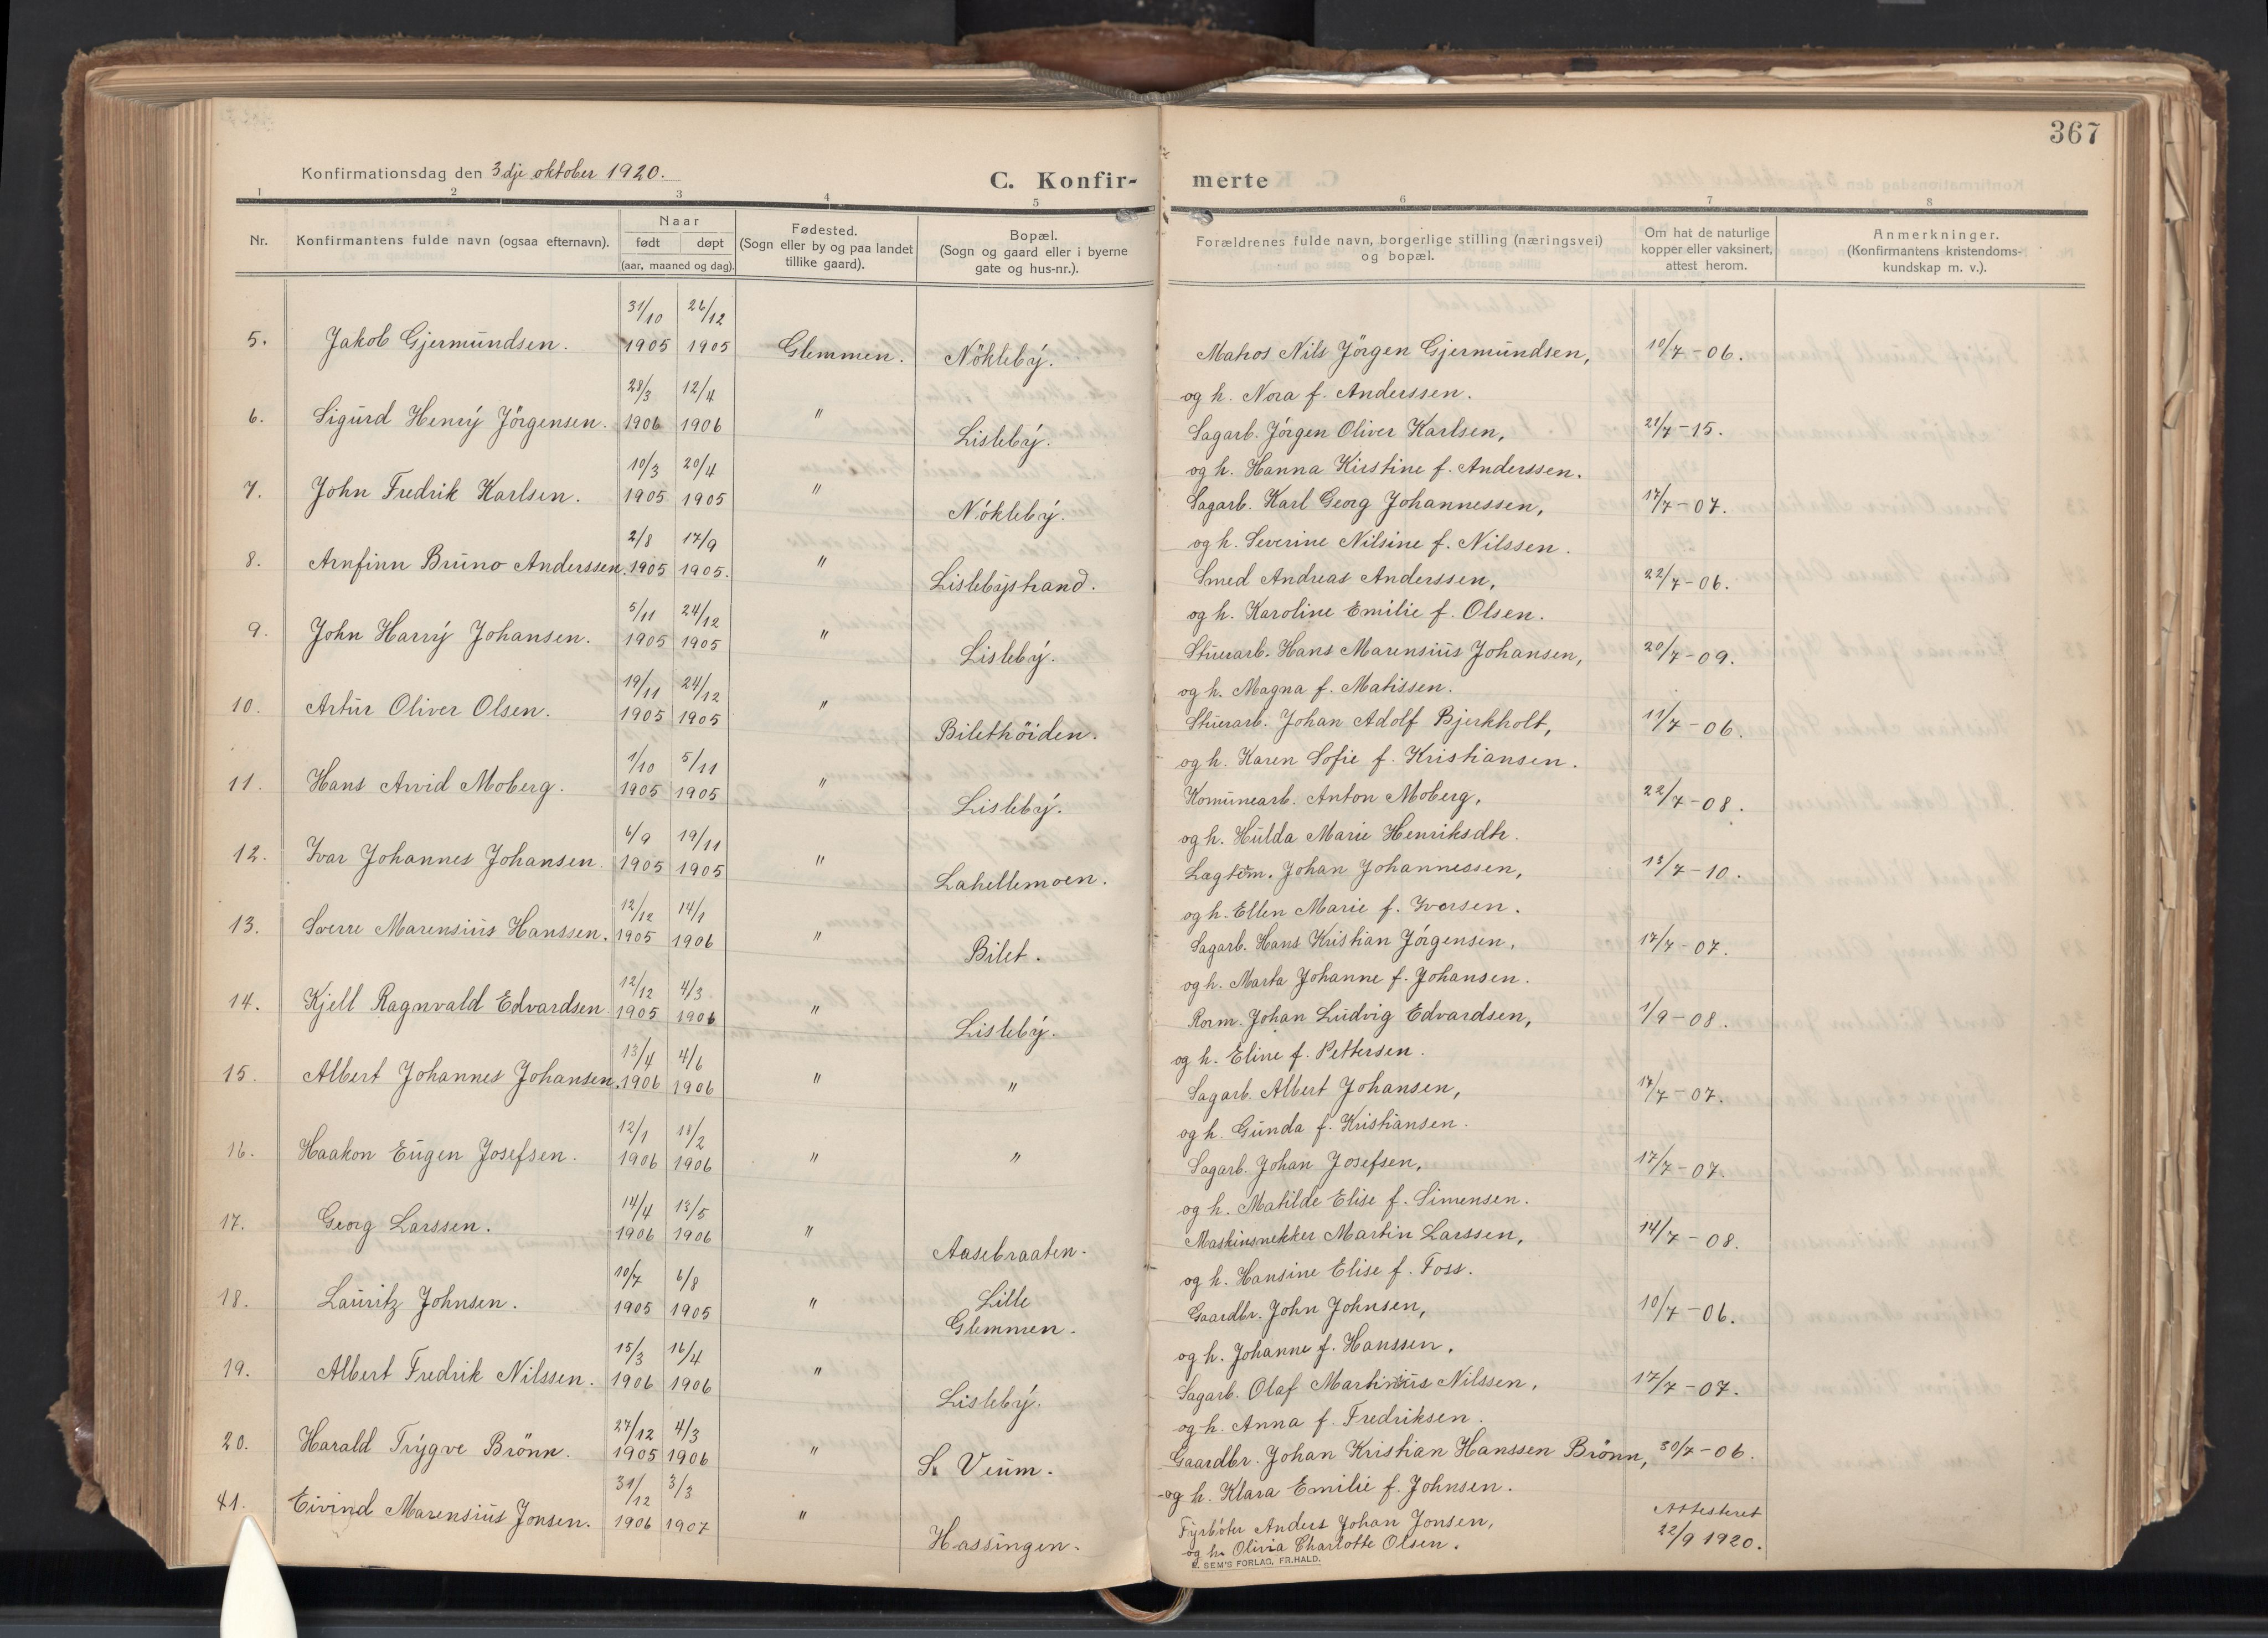 367
Konfirmationsdag den 3dje oktober 1920.
C. Konfir- merte
1 2 3 4 5 6 7 8
Nr. Konfirmantens fulde navn (ogsaa efternavn). Naar født døpt (aar, maaned og dag). Fødested. (Sogn eller by og paa landet tillike gaard). Bopæl. (Sogn og gaard eller i byerne gate og hus-nr.). Forældrenes fulde navn, borgerlige stilling (næringsvei) og bopæl. Om hat de naturlige kopper eller vaksinert, attest herom. Anmerkninger. (Konfirmantens kristendoms-kundskap m. v.).
31/10 26/12
5. Jakob Gjermundsen. 1905 1905 Glemmen. Nökleby. Matros Nils Jörgen Gjermundsen, 10/7-06.
28/3 12/4 og h. Nora f. Anderssen.
6. Sigurd Henry Jörgensen. 1906 1906 " Lisleby. Sagarb. Jörgen Oliver Karlsen, 21/7-15.
10/3 20/4 og h. Hanna Kirstine f. Anderssen.
7. John Fredrik Karlsen. 1905 1905 " Nökleby. Sagarb. Karl Georg Johannessen, 17/7-07.
2/8 17/9 og h. Severine Nilsine f. Nilssen.
8. Arnfinn Bruno Anderssen. 1905 1905. " Lislebystrand. Smed Andreas Anderssen, 22/7-06.
5/11 24/12 og h. Karoline Emilie f. Olsen.
9. John Harry Johansen. 1905 1905 " Lisleby. Stuerarb. Hans Marensius Johansen, 20/7-09.
19/11 24/12 og h. Magna f. Matissen.
10. Artur Oliver Olsen. 1905 1905 " Bilethöiden. Stuerarb. Johan Adolf Bjerkholt, 11/7-06.
1/10 5/11 og h. Karen Sofie f. Kristiansen.
11. Hans Arvid Moberg. 1905 1905 " Lisleby. Komunearb. Anton Moberg, 22/7-08.
6/9 19/11 og h. Hulda Marie Henriksdtr.
12. Ivar Johannes Johansen. 1905 1905 " Lahellemoen. Lagtöm. Johan Johannessen, 13/7-10.
12/12 14/1 og h. Ellen Marie f. Iversen.
13. Sverre Marensius Hanssen. 1905 1906 " Bilet. Sagarb. Hans Kristian Jörgensen, 17/7-07.
12/12 4/3 og h. Marta Johanne f. Johansen.
14. Kjell Ragnvald Edvardsen 1905 1906 " Lisleby. Rorm. Johan Ludvig Edvardsen, 1/9-08.
13/4 4/6 og h. Eline f. Pettersen.
15. Albert Johannes Johansen. 1906 1906 " " Sagarb. Albert Johansen, 17/7-07.
12/1 18/2 og h. Gunda f. Kristiansen.
16. Haakon Eugen Josefsen. 1906 1906 " " Sagarb. Johan Josefsen, 17/7-07.
14/4 13/5 og h. Matilde Elise f. Simensen.
17. Georg Larssen. 1906 1906 " Aasebraaten. Maskinsnekker Martin Larssen, 14/7-08.
10/7 6/8 og h. Hansine Elise f. Foss.
18. Lauritz Johnsen. 1905 1905 " Lille Glemmen. Gaardbr. John Johnsen, 10/7-06.
15/3 16/4 og h. Johanne f. Hanssen.
19. Albert Fredrik Nilssen. 1906 1906 " Lisleby. Sagarb. Olaf Martinius Nilssen, 17/7-07.
27/12 4/3 og h. Anna f. Fredriksen.
20. Harald Trygve Brönn. 1905 1906 " S. Veum. Gaardbr. Johan Kristian Hanssen Brönn, 30/7-06.
31/12 3/3 og h. Klara Emilie f. Johnsen.
41. Eivind Marensius Jonsen. 1906 1907 " Hassingen. Fyrböter Anders Johan Jonsen, Attesteret
og h. Olivia Charlotte Olsen. 22/9 1920.
E. SEM'S FORLAG, FR.HALD.